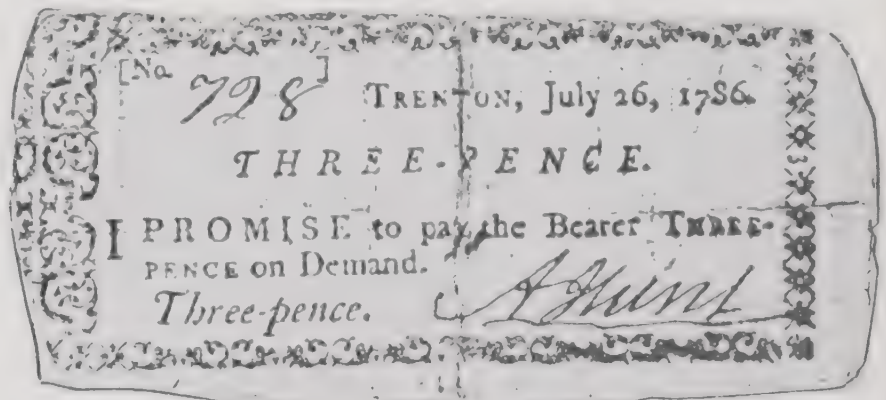 [No. 728]
TRENTON, July 26, 1786.
THREE-PENCE.
I PROMISE to pay the Bearer THREE-
PENCE on Demand.
Three-pence. A Hunt